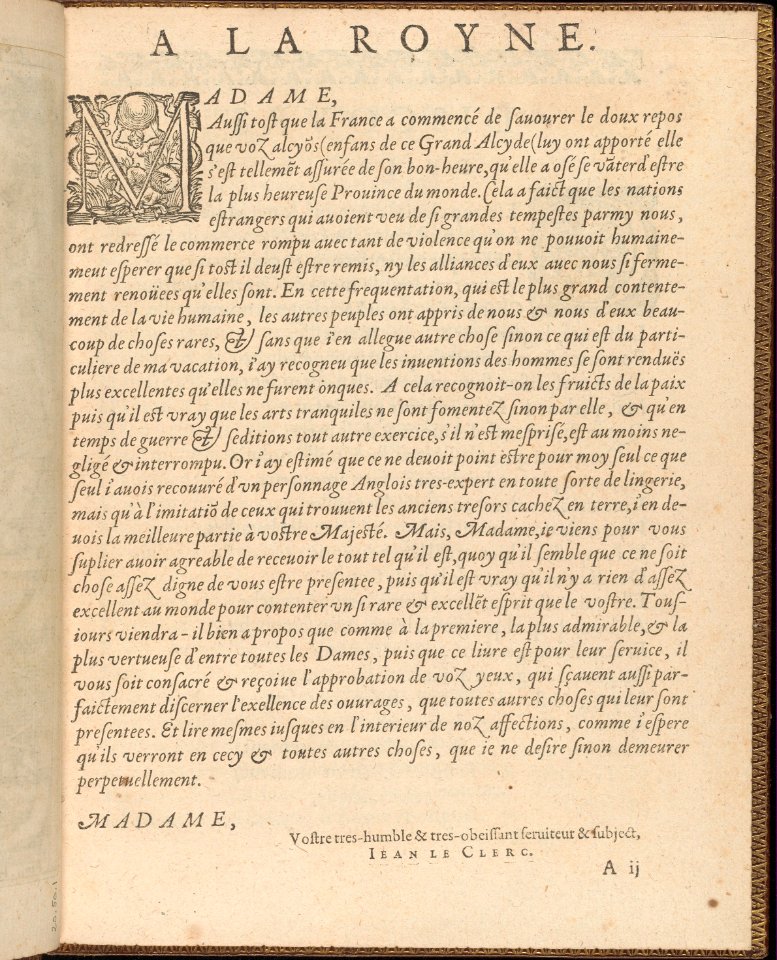 A LA ROYNE.
MADAME,
Aussi tost que la France a commencé de savourer le doux repos
que voz alcyõs (enfans de ce Grand Alcyde (luy ont apporté elle
s'est tellemẽt assurée de son bon-heure, qu'elle a osé se vãter d'estre
la plus heureuse Prouince du monde. Cela a faict que les nations
estrangers qui auoient veu de si grandes tempestes parmy nous,
ont redressé le commerce rompu auec tant de violence qu'on ne pouuoit humaine-
meut esperer que si tost il deust estre remis, ny les alliances d'eux auec nous si ferme-
ment renoüees qu'elles sont. En cette frequentation, qui est le plus grand contente-
ment de la vie humaine, les autres peuples ont appris de nous & nous d'eux beau-
coup de choses rares, & sans que i'en allegue autre chose sinon ce qui est du parti-
culiere de ma vacation, i'ay recogneu que les inuentions des hommes se sont renduës
plus excellentes qu'elles ne furent onques. A cela recognoit-on les fruicts de la paix
puis qu'il est vray que les arts tranquiles ne sont fomentez sinon par elle, & qu'en
temps de guerre & seditions tout autre exercice, s'il n'est mesprisé, est au moins ne-
gligé & interrompu. Or i'ay estimé que ce ne deuoit point estre pour moy seul ce que
seul i'auois recouuré d'vn personnage Anglois tres-expert en toute sorte de lingerie,
mais qu'à l'imitatiõ de ceux qui trouuent les anciens tresors cachez en terre, i'en de-
uois la meilleure partie à vostre Majesté. Mais, Madame, ie viens pour vous
suplier auoir agreable de receuoir le tout tel qu'il est, quoy qu'il semble que ce ne soit
chose assez digne de vous estre presentee, puis qu'il est vray qu'il n'y a rien d'assez
excellent au monde pour contenter vn si rare & excellẽt esprit que le vostre. Tous-
iours viendra-il bien a propos que comme à la premiere, la plus admirable, & la
plus vertueuse d'entre toutes les Dames, puis que ce liure est pour leur seruice, il
vous soit consacré & reçoiue l'approbation de voz yeux, qui sçauent aussi par-
faictement discerner l'exellence des ouurages, que toutes autres choses qui leur sont
presentees. Et lire mesmes iusques en l'interieur de noz affections, comme i'espere
qu'ils verront en cecy & toutes autres choses, que ie ne desire sinon demeurer
perpetuellement.
MADAME,
Vostre tres-humble & tres-obeissant seruiteur & subject,
IEAN LE CLERC.
A ij
20.50.1